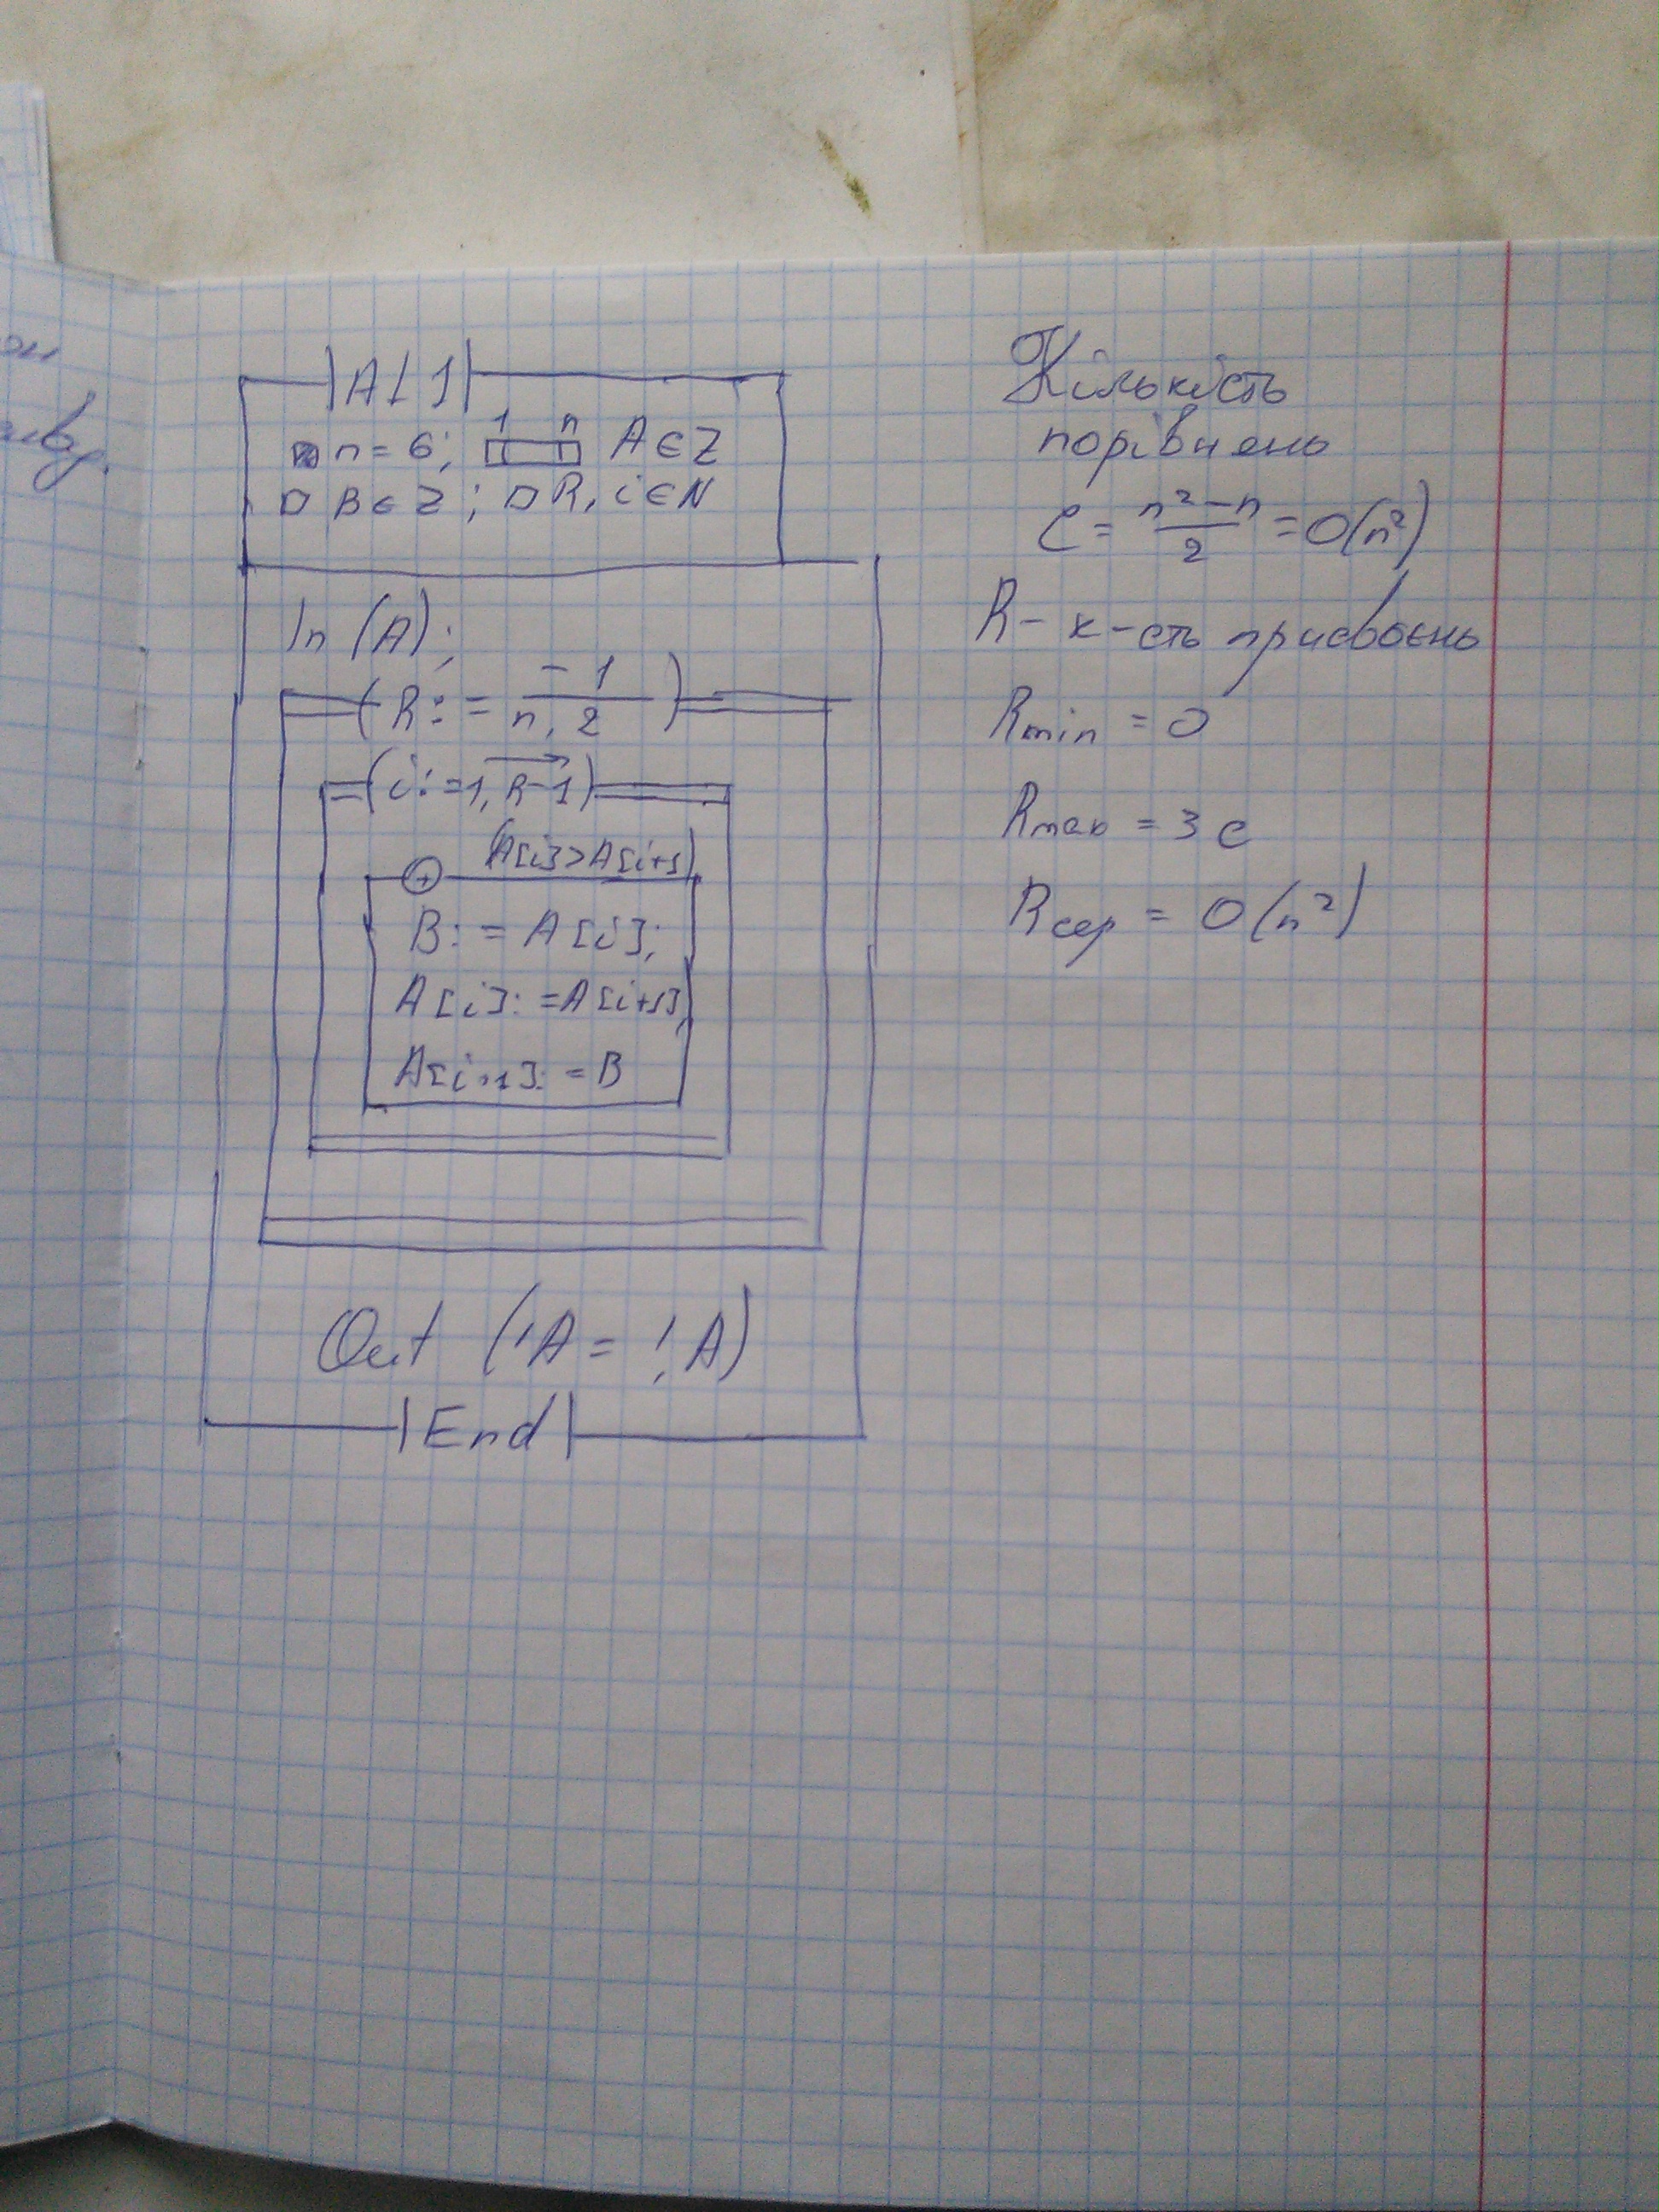 AL1
n = 6; 1 n A ∈ Z
B ∈ Z; R, i ∈ N
In (A);
(R: = n, 2 -1)
(i: = 1, R-1)
(A[i] > A[i+1])
+
B: = A[i];
A[i]: = A[i+1];
A[i+1]: = B
Out ('A = ', A)
End
Кількість
порівнень
C = n² - n / 2 = O(n²)
R - к-сть присвоєнь
Rmin = 0
Rmax = 3 C
Rсер = O(n²)